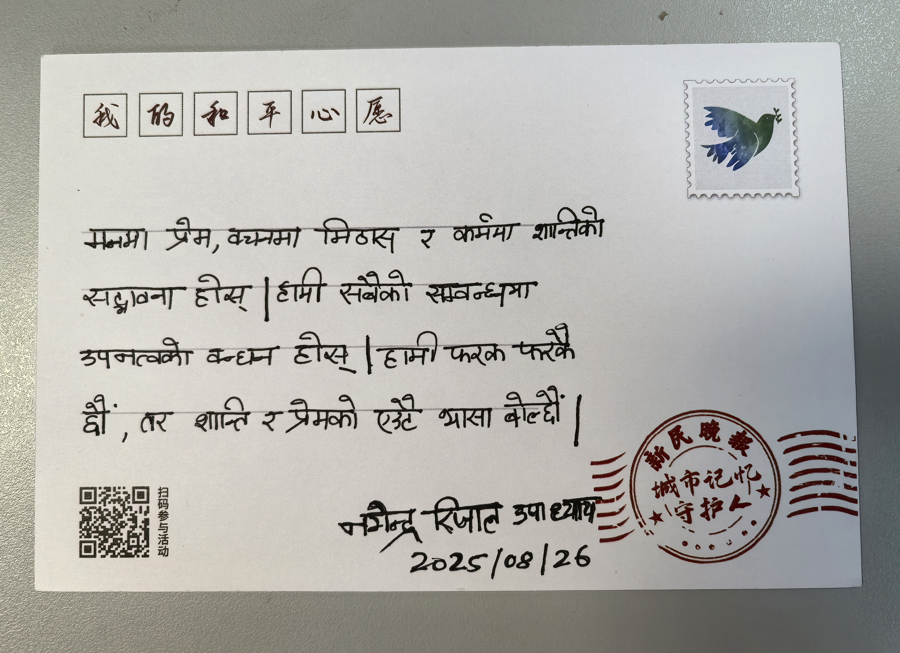 我的和平心愿
मनमा प्रेम, वचनमा मिठास र कर्ममा शान्तिको
सद्भावना होस् | हामी सबैको सम्वन्धमा
उपनत्वको वन्धन होस् | हामी फरक फरकै
छौं, तर शान्ति र प्रेमको एउटै भासा बोल्छौं |
नगेन्द्र रिजाल उपाध्याय
2025/08/26
扫码参与活动
新民晚报
城市记忆
守护人